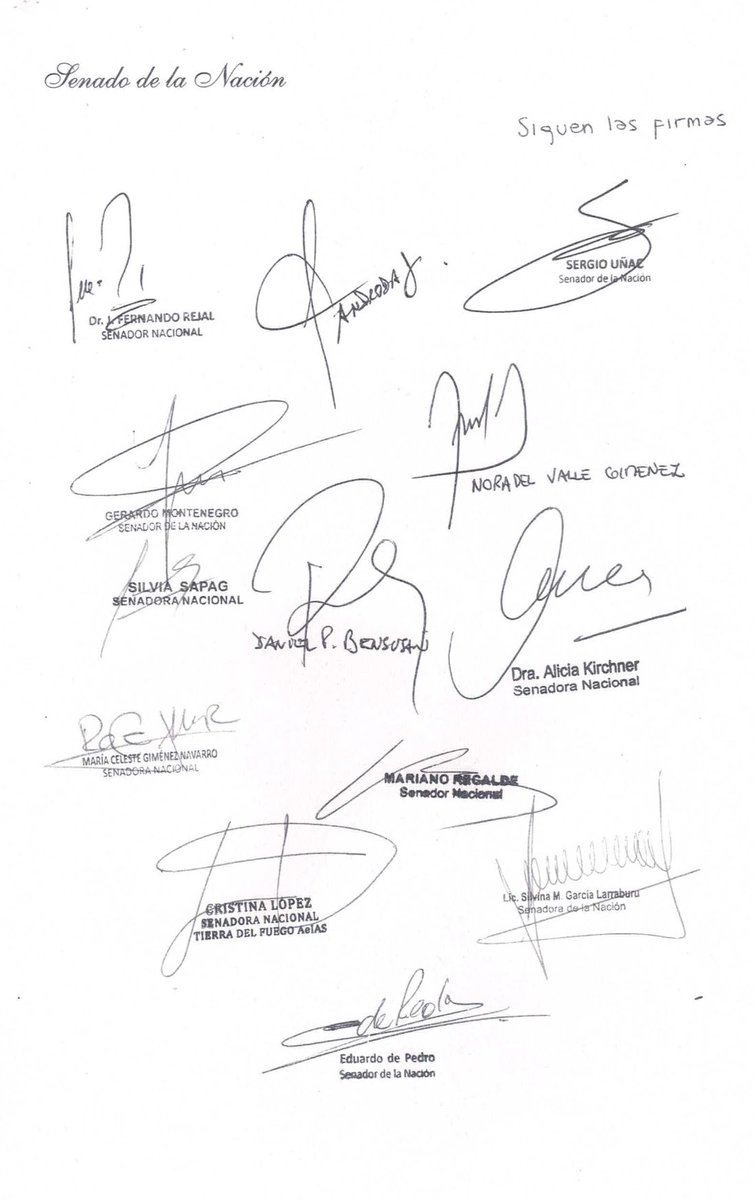 Senado de la Nación
Siguen las firmas
Dr. J. FERNANDO REJAL
SENADOR NACIONAL
ANDRADA J
SERGIO UÑAC
Senador de la Nación
GERARDO MONTENEGRO
SENADOR DE LA NACIÓN
NORA DEL VALLE GIMENEZ
SILVIA SAPAG
SENADORA NACIONAL
DANIEL P. BENSUSAN
Dra. Alicia Kirchner
Senadora Nacional
MARÍA CELESTE GIMÉNEZ NAVARRO
SENADORA NACIONAL
MARIANO RECALDE
Senador Nacional
CRISTINA LÓPEZ
SENADORA NACIONAL
TIERRA DEL FUEGO AeIAS
Lic. Silvina M. García Larraburu
Senadora de la Nación
de Pedro
Eduardo de Pedro
Senador de la Nación